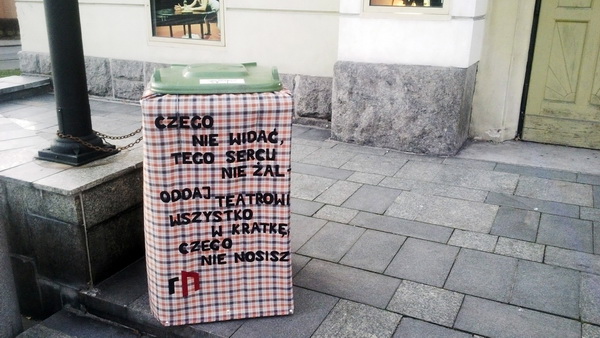 CZEGO
NIE WIDAĆ,
TEGO SERCU
NIE ŻAL-
ODDAJ TEATROWI
WSZYSTKO
W KRATKĘ,
CZEGO
NIE NOSISZ